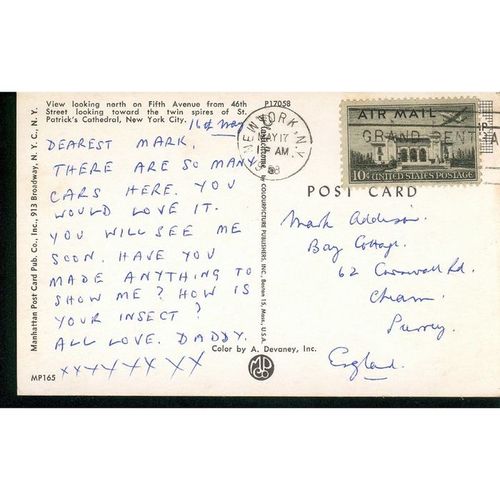 View looking north on Fifth Avenue from 46th
Street looking toward the twin spires of St.
Patrick's Cathedral, New York City.
P17058
16th May
DEAREST MARK,
THERE ARE SO MANY
CARS HERE. YOU
WOULD LOVE IT.
YOU WILL SEE ME
SOON. HAVE YOU
MADE ANYTHING TO
SHOW ME? HOW IS
YOUR INSECT?
ALL LOVE. DADDY.
xxxxxxx xx
Color by A. Devaney, Inc.
MP165
Manhattan Post Card Pub. Co., Inc., 913 Broadway, N. Y. C., N. Y.
by COLOURPICTURE PUBLISHERS, INC., Boston 15, Mass., U.S.A.
MP
NEW YORK, N.Y.
MAY 17
AM
AIR MAIL
GRAND CENT
10¢ UNITED STATES POSTAGE
POST CARD
Mark Addison.
Bay Cottage.
62 Cornwall Rd.
Cheam.
Surrey.
England.